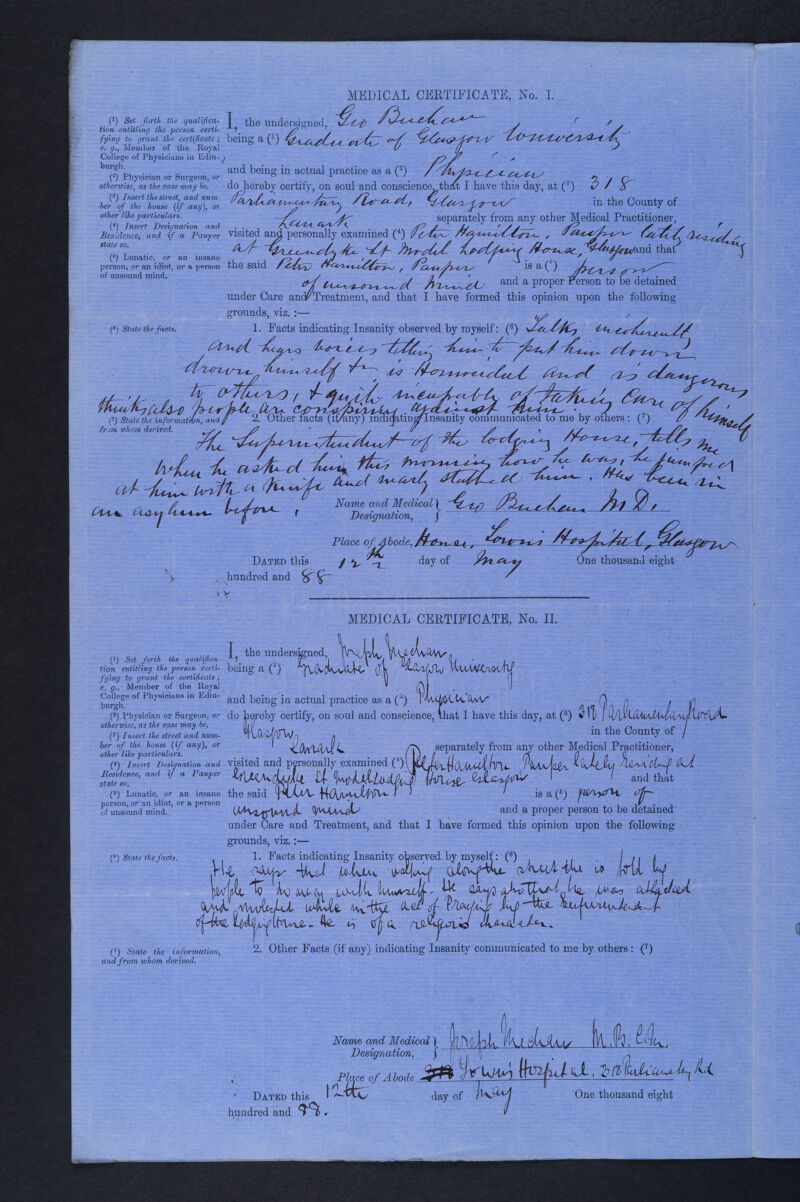 MEDICAL CERTIFICATE, No. I.
(¹) Set forth the qualifica-
tion entitling the person certi-
fying to grant the certificate;
e. g., Member of the Royal
College of Physicians in Edin-
burgh.
(²) Physician or Surgeon, or
otherwise, as the case may be.
(³) Insert the street, and num-
ber of the house (if any), or
other like particulars.
(⁴) Insert Designation and
Residence, and if a Pauper
state so.
(⁵) Lunatic, or an insane
person, or an idiot, or a person
of unsound mind.
I, the undersigned, Geo Buchan
being a (¹) Graduate of Glasgow University
and being in actual practice as a (²) Physician
do hereby certify, on soul and conscience, that I have this day, at (³) 318
Parliamentary Road, Glasgow in the County of
Lanark separately from any other Medical Practitioner,
visited and personally examined (⁴) Peter Hamilton, Pauper lately residing
at Greendyke St Model Lodging House, Glasgow and that
the said Peter Hamilton, Pauper is a (⁵) person
of unsound mind and a proper Person to be detained
under Care and Treatment, and that I have formed this opinion upon the following
grounds, viz. :—
(⁶) State the facts.
1. Facts indicating Insanity observed by myself: (⁶) Talks incoherently
and hears voices telling him to put him down
drown himself + is Homicidal and is dangerous
to others, + quite incapable of taking care of himself
thinks also people are conspiring against him.
(⁷) State the information, and
from whom derived.
2. Other facts (if any) indicating Insanity communicated to me by others: (⁷)
The Superintendent of the lodging House, tells me
when he asked him this morning how he was, he jumped
at him with a knife and nearly stabbed him. Has been in
an asylum before.
Name and Medical Designation, Geo Buchan M.D.
Place of Abode, House, Town's Hospital, Glasgow
DATED this 12th day of May One thousand eight
hundred and 88
MEDICAL CERTIFICATE, No. II.
(¹) Set forth the qualifica-
tion entitling the person certi-
fying to grant the certificate;
e. g., Member of the Royal
College of Physicians in Edin-
burgh.
(²) Physician or Surgeon, or
otherwise, as the case may be.
(³) Insert the street and num-
ber of the house (if any), or
other like particulars.
(⁴) Insert Designation and
Residence, and if a Pauper
state so.
(⁵) Lunatic, or an insane
person, or an idiot, or a person
of unsound mind.
I, the undersigned, Joseph Mechan
being a (¹) Graduate of Glasgow University
and being in actual practice as a (²) Physician
do hereby certify, on soul and conscience, that I have this day, at (³) 318 Parliamentary Road
Glasgow in the County of
Lanark separately from any other Medical Practitioner,
visited and personally examined (⁴) Peter Hamilton Pauper lately residing at
Greendyke St Model Lodging House Glasgow and that
the said Peter Hamilton is a (⁵) person of
unsound mind and a proper person to be detained
under Care and Treatment, and that I have formed this opinion upon the following
grounds, viz. :—
(⁶) State the facts.
1. Facts indicating Insanity observed by myself: (⁶)
He says that when walking along the street he is told by
people to do away with himself. He says also that he was attacked
and molested while in the act of Praying by the Superintendent
of the Lodging House. He is of a religious character.
(⁷) State the information,
and from whom derived.
2. Other Facts (if any) indicating Insanity communicated to me by others: (⁷)
Name and Medical Designation, Joseph Mechan M.B. C.M.
Place of Abode Town's Hospital. 318 Parliamentary Rd
DATED this 12th day of May One thousand eight
hundred and 88.